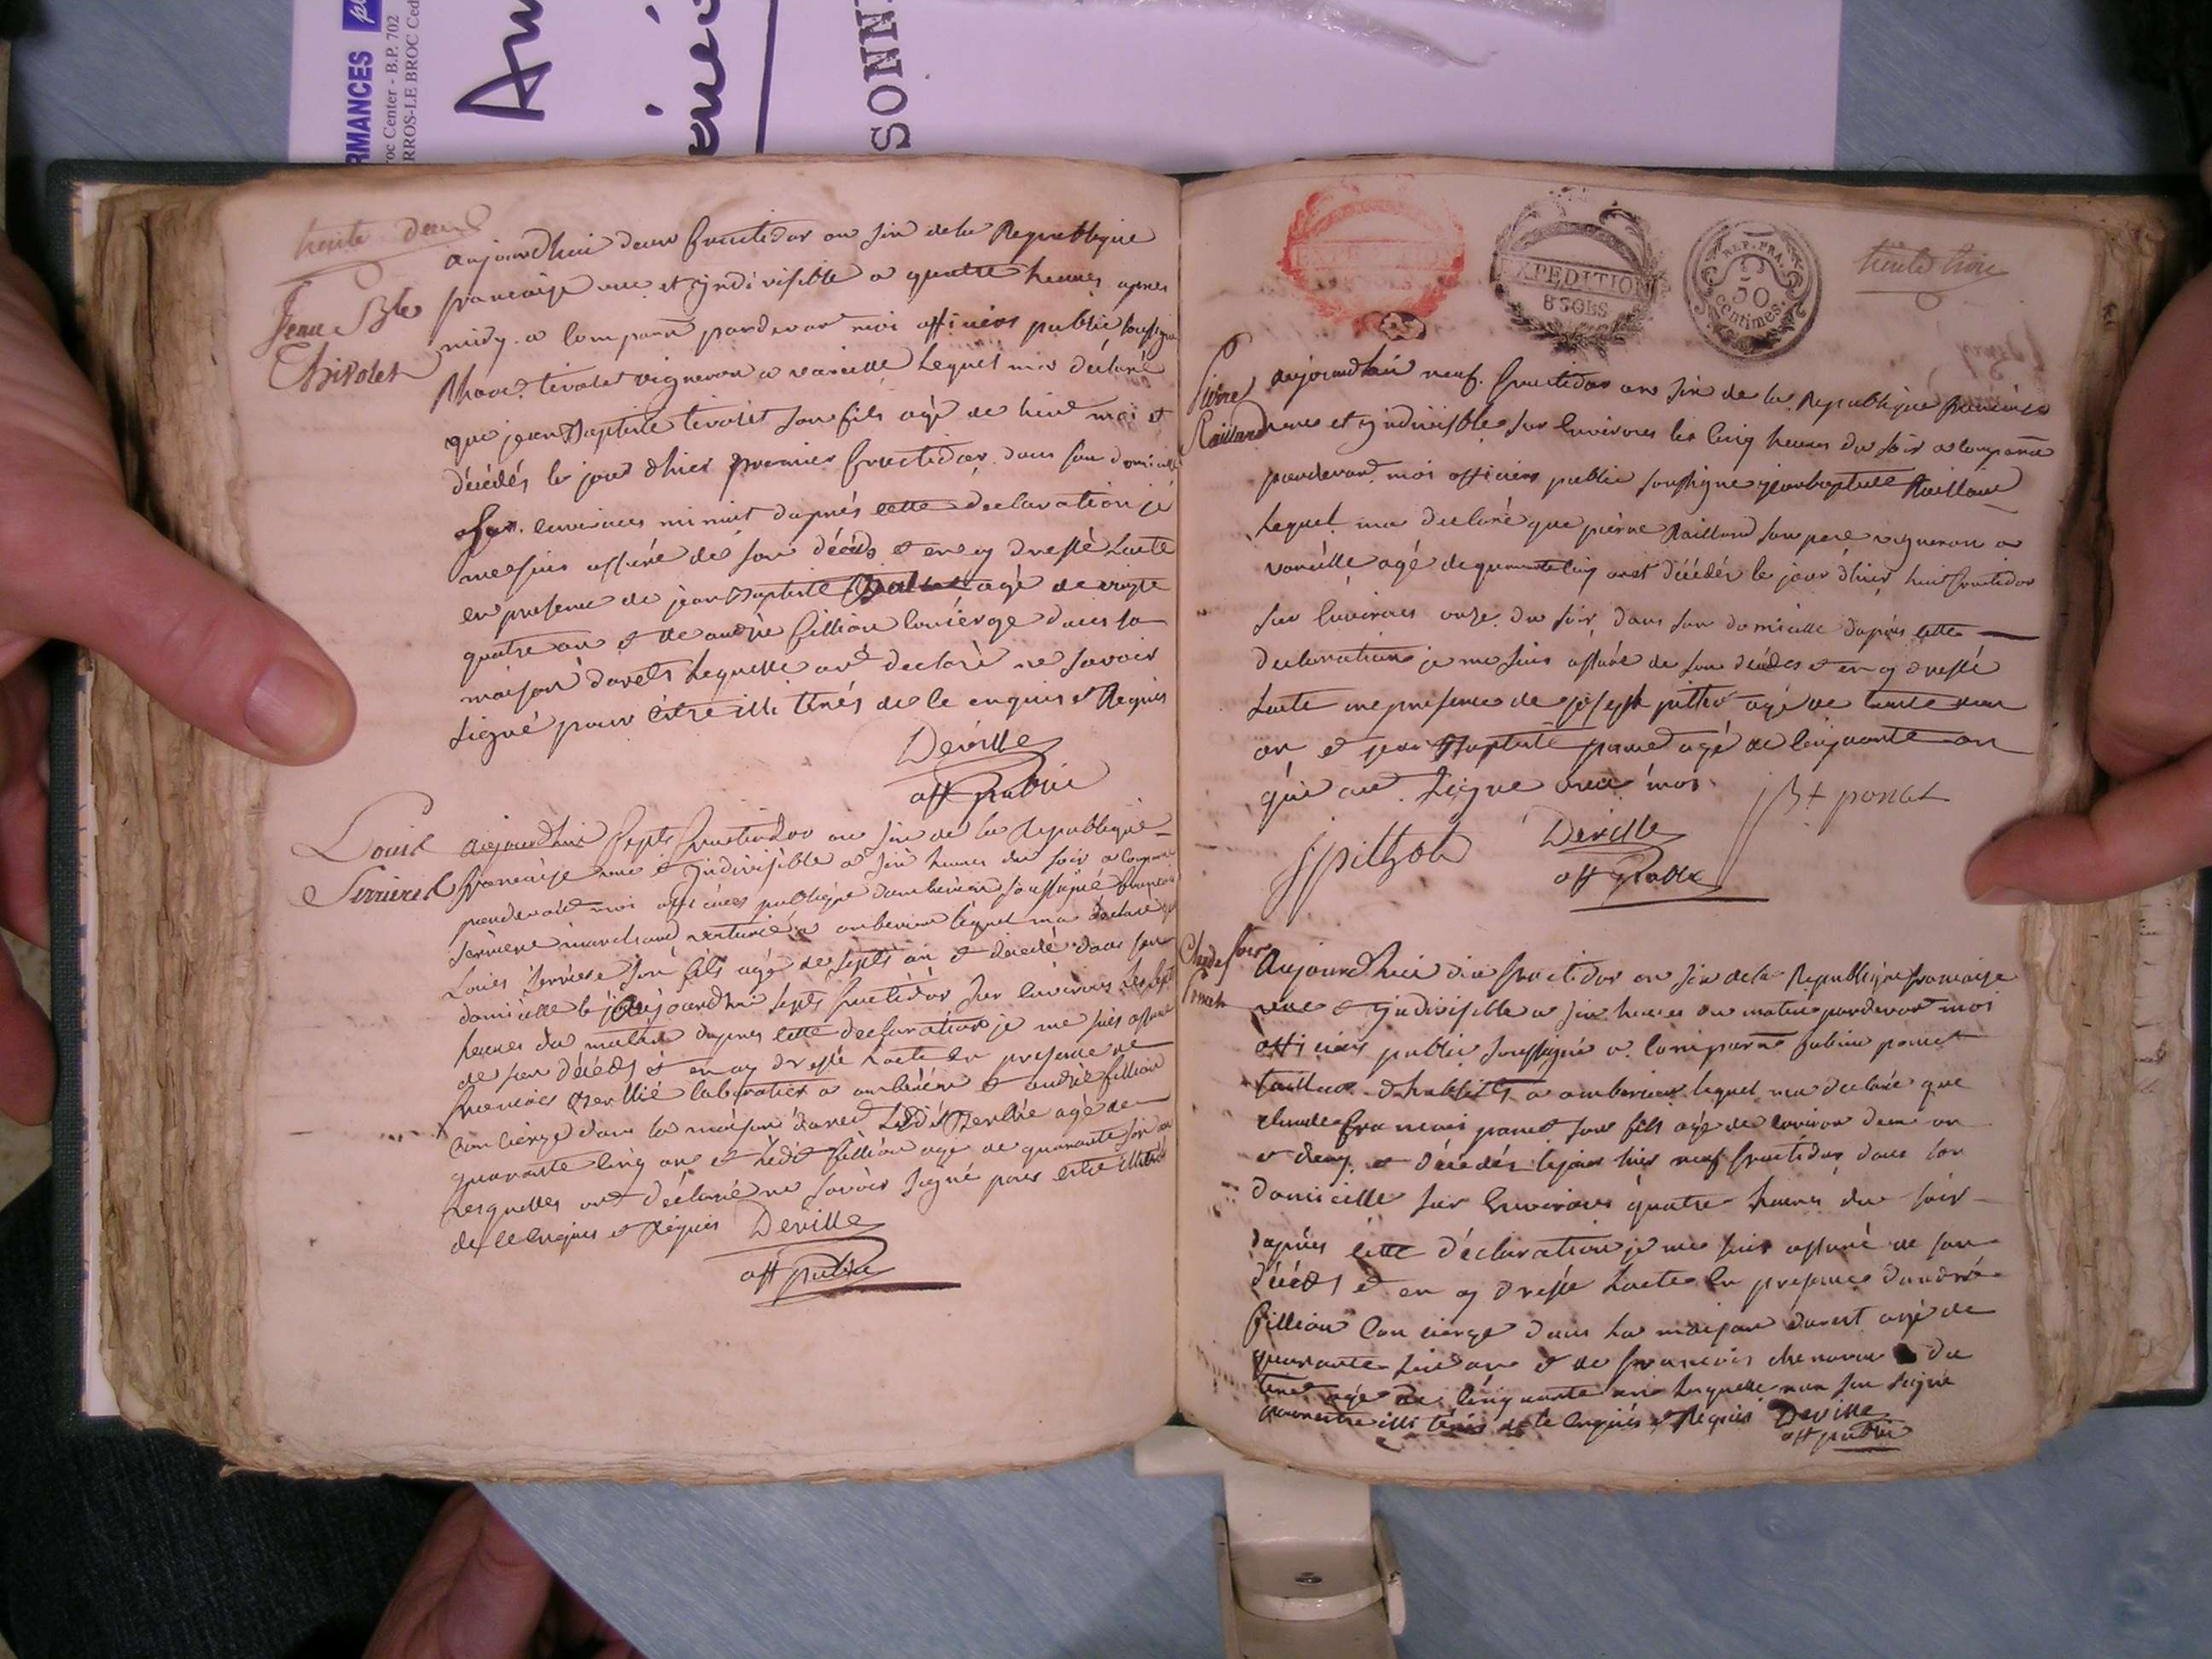 RMANCES
oc Center - B.P. 702
RROS-LE BROC Ced
An
SONN
trente deux
Jean Bte
Thivolet
aujourdhui deux fructidor an six de la Republique
francaise une et yndivisible a quatre heures apres
midy a comparu pardevant moi officiers public soussigne
tivolet vigneron a vareille Lequel ma déclaré
que jean Baptiste tivolet son fils agé de huit moi et
décédés le jour dhier premier fructidor dans son domicille
environs minuit daprés cette declaration je
me suis assuré de son décéds et en ay dressé Lacte
en presence de jean Baptiste agé de vingte
quatre an et de andrée fillion Conciérge dans la
maison darets Lequelle ont declaré ne savoir
signé pour éstre illi térés de ce enquis et Requis
Deville
off public
Louis
Serriere
aujourdhui septs fructidor an six de la Republique
francaise une et yndivisible a six heures du soir a comparu
pardevant moi officiers publique damberieu soussigné francois
serriere marchand a amberieu lequel ma declaré que
Louis serriere son fils agé de septs an et decedé dans son
domicille le jourdhui septs fructidor sur environs les septs
heures du matin dapres cette declaration je me suis assuré
de son décéds et en ay dressé Lacte en presence de
francois laboratier a amberieu et andrée fillion
Concierge dans la maison darest agé de
quarante cinq an et Ledit fillion agé de quarante six an
Lesquelles ont declaré ne savoir signé pour estre illitérés
de ce enquis et Requis Deville
off public
EXPEDITION
EXPEDITION
8 SOLS
REP. FRA.
50
centimes.
trente trois
Pierre
Raillard
aujourdhui neuf fructidor an six de la Republique francaise
une et yndivisible sur environs les cinq heures du soir a comparu
pardevant moi officiers public soussigne jean baptiste Raillard
Lequel ma declaré que pierre Raillard son pere vigneron a
vareille agé de quarante cinq an et décédés le jour dhier huit fructidor
sur environs onze du soir dans son domicille daprés cette
declaration je me suis assuré de son décéds et en ay dressé
Lacte en presence de joseph agé de trente
an et jean Baptiste ponet agé de cinquante an
qui ont signé avec moi
J Bt ponet
Deville
off public
Claude fois
Ponet
Aujourdhui dix fructidor an six de la Republique francaise
une et yndivisible a six heures du matin pardevant moi
officiers public soussigné a comparu fabien ponet
tailleur dhabits a amberieu lequel ma declaré que
claude francois ponet son fils agé de environ deux an
et demy et décédés le jour hier neuf fructidor dans son
domicille sur environs quatre heures du soir
daprés cette déclaration je me suis assuré de son
décéds et en ay dressé Lacte en presence dandré
fillion Concierge dans la maison darest agé de
quarante six an et de francois chenavaz du
agé de cinquante an Lequelle non pas signé
pour estre illi térés de ce enquis et Requis Deville
off public